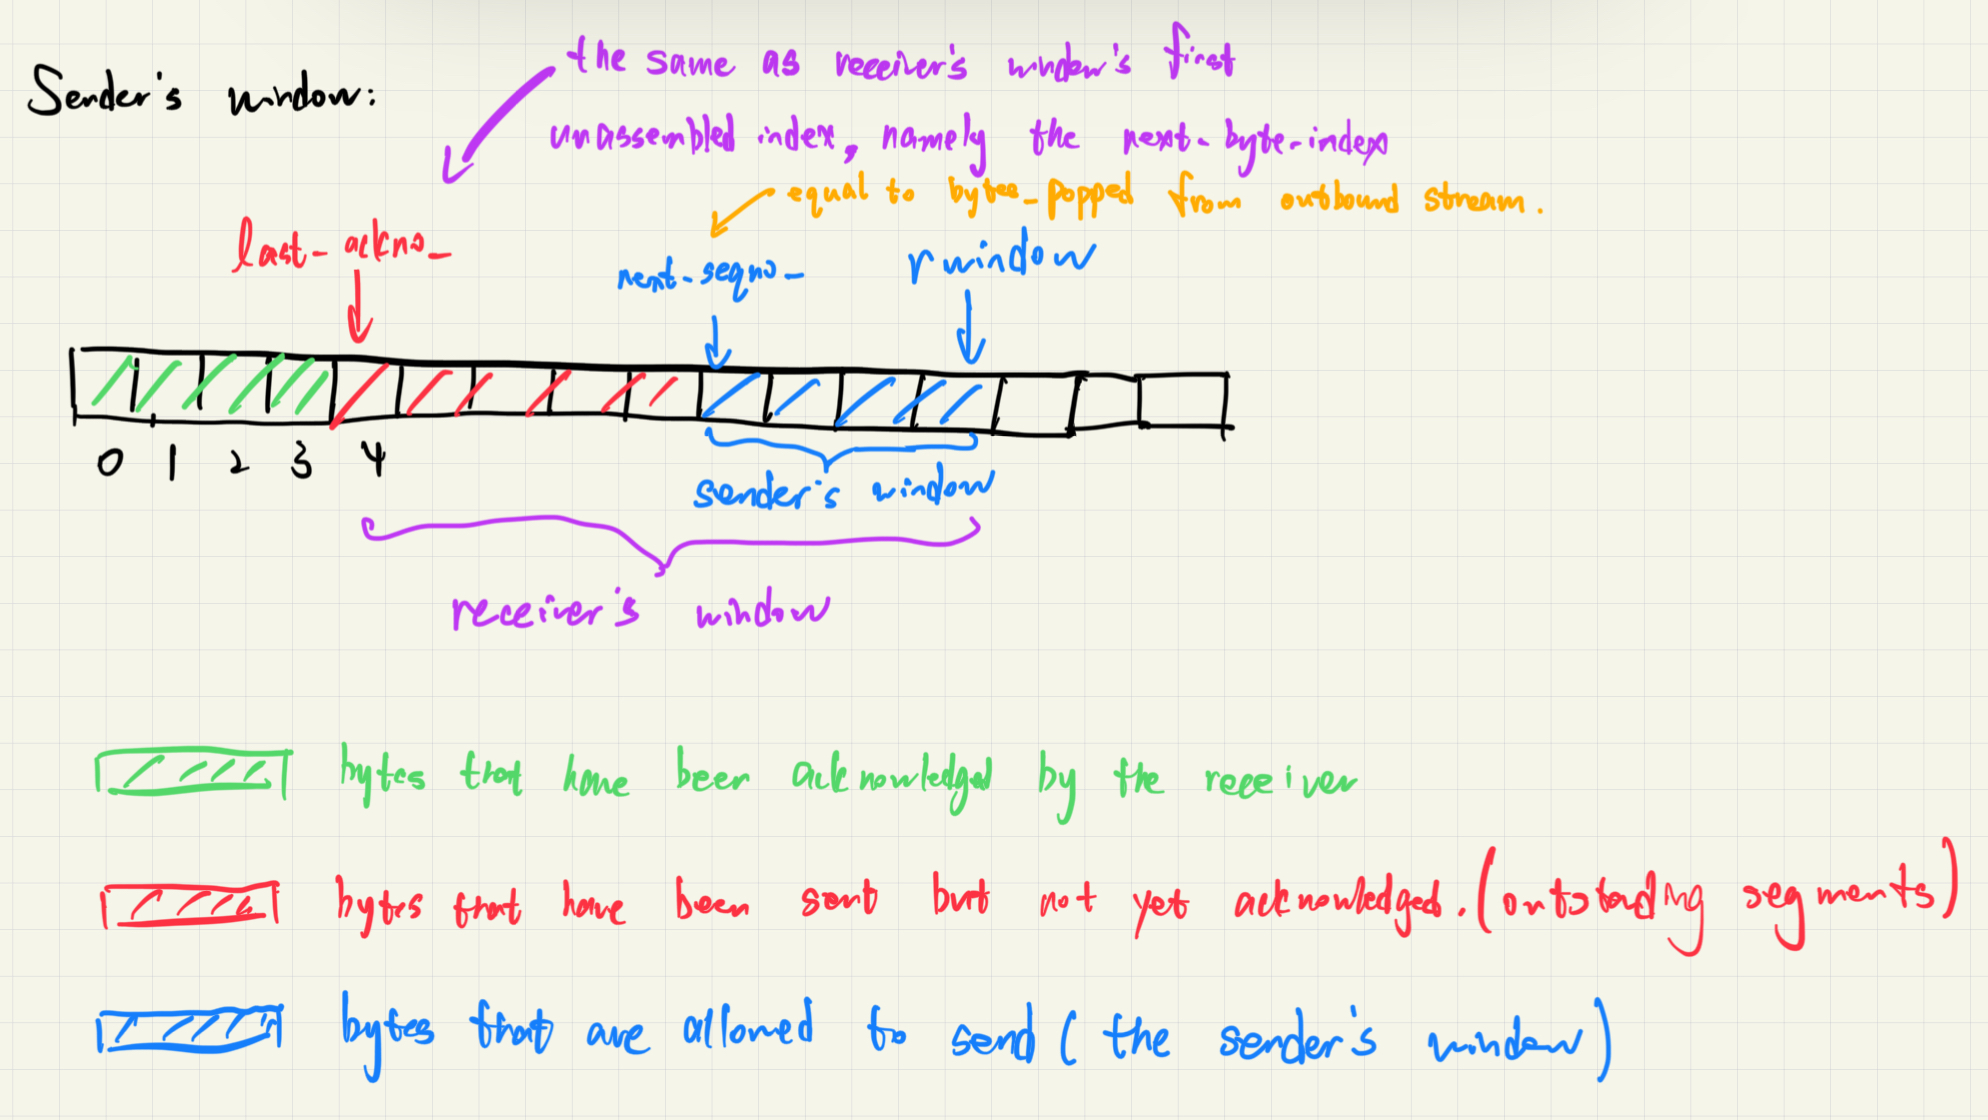 Sender's window:
the same as receiver's window's first
unassembled index, namely the next-byte-index
equal to bytes_popped from outbound stream.
last_ackno_
next_seqno_
rwindow
0 1 2 3 4
sender's window
receiver's window
bytes that have been acknowledged by the receiver
bytes that have been sent but not yet acknowledged. (outstanding segments)
bytes that are allowed to send (the sender's window)